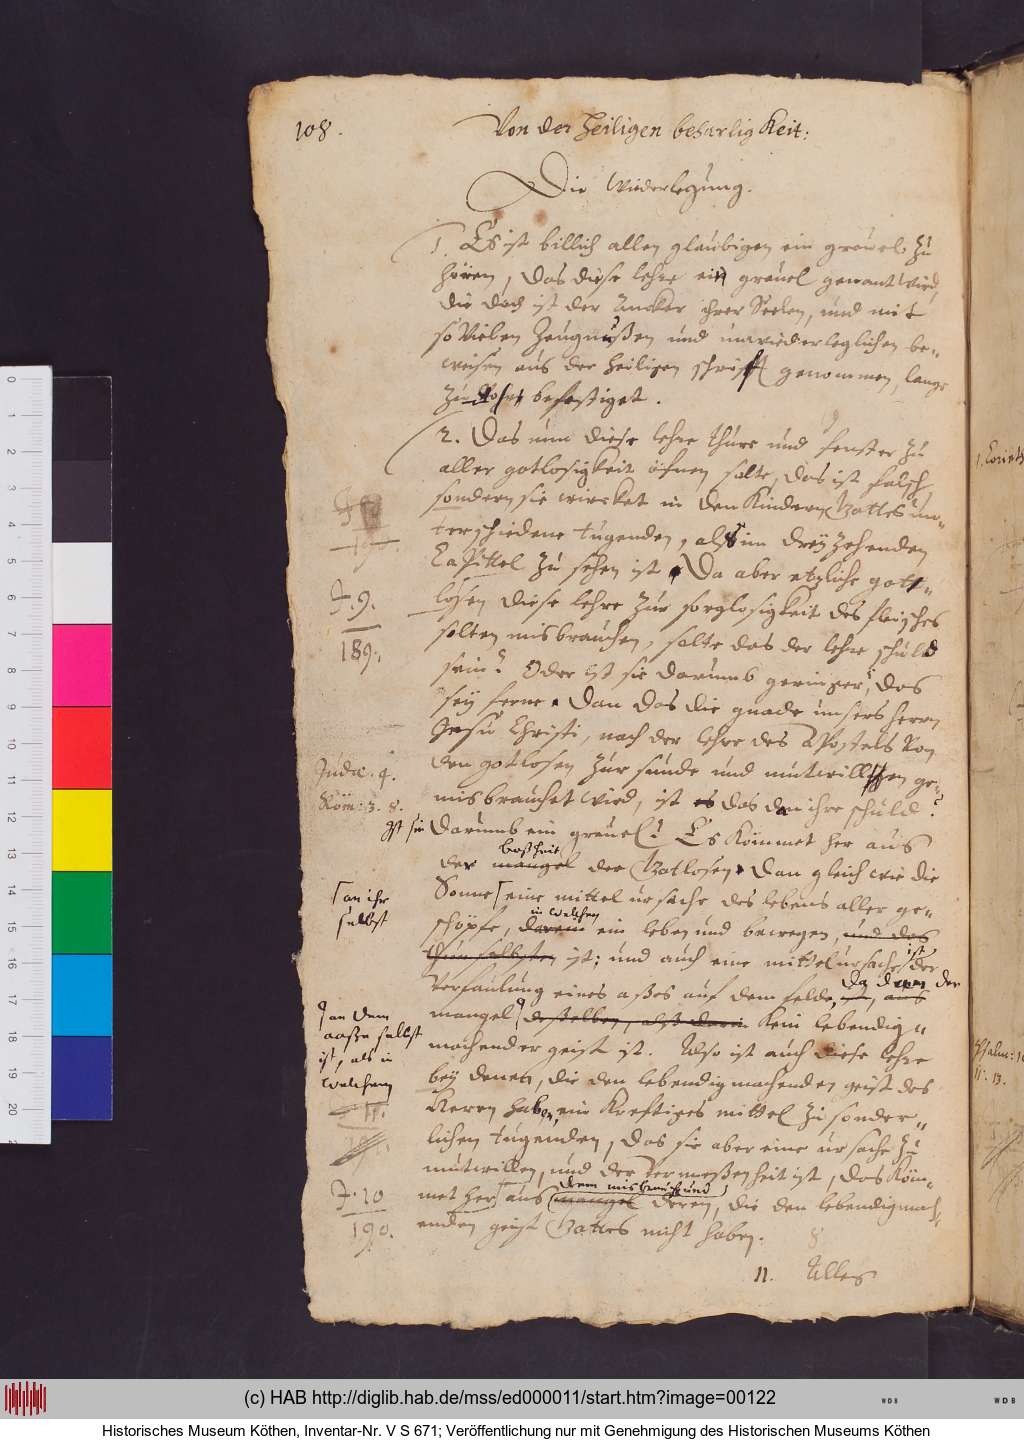 108.
Von der Heiligen beharligkeit:
Die Widerlegung.
1. Es ist billich allen glaubigen ein greuel zu
hören, das diese lehre ein greuel genant wird,
die doch ist der Ancker ihrer Seelen, und mit
so vielen Zeugnußen und unwiederleglichen be-
weisen aus der heiligen schrifft genommen, lange
befestiget.
2. Das nun diese lehre thüre und fenster zu
aller gotlosigkeit öfnen solte, das ist falsch
sondern sie wircket in den Kindern Gottes un-
terschiedene tugenden, als im dreyzehenden
Capittel zu sehen ist. Da aber etzliche gott-
losen diese lehre zur sorglosigkeit des fleisches
solten misbrauchen, solte das der lehre schuld
sein? Oder ist sie darumb geringer? das
sey ferne. Dan das die gnade unsers herrn
Jesu Christi, nach der lehre des Apostels von
den gotlosen zur sünde und mutwillen ge-
misbrauchet wird, ist es das dan ihre schuld?
Ist sie darumb ein greuel? Es kömmet her aus
boßheit
der mangel der Gotlosen. Dan gleich wie die
Sonne eine mittel ursache des lebens aller ge-
in welchen
schöpfe, darein ein leben und bewegen, und das
thun selbsten ist; und auch eine mittel ursache der
ist
verfaulung eines aßes auf dem felde, aus
da dan der
mangel deßelben, alß darin kein lebendig-
machender geist ist. Also ist auch diese lehre
bey denen, die den lebendigmachenden geist des
Herrn haben, ein kreftiges mittel zu sonder-
lichen tugenden, das sie aber eine ursache zu
mutwillen, und der vermeßenheit ist, das köm-
dem misbrauch und
met her aus mangel deren, die den lebendigmach-
enden geist Gottes nicht haben.
11. Alles
190.
F. 9.
189.
Judæ. 4.
Röm: 3. 8.
an ihr
selbst
an dem
aaße selbst
ist, als in
welchem
11.
F. 10
190.
1. Corinth
Psalm: 1
11. 13.
0
1
2
3
4
5
6
7
8
9
10
11
12
13
14
15
16
17
18
19
20
(c) HAB http://diglib.hab.de/mss/ed000011/start.htm?image=00122
WDB
WDB
Historisches Museum Köthen, Inventar-Nr. V S 671; Veröffentlichung nur mit Genehmigung des Historischen Museums Köthen